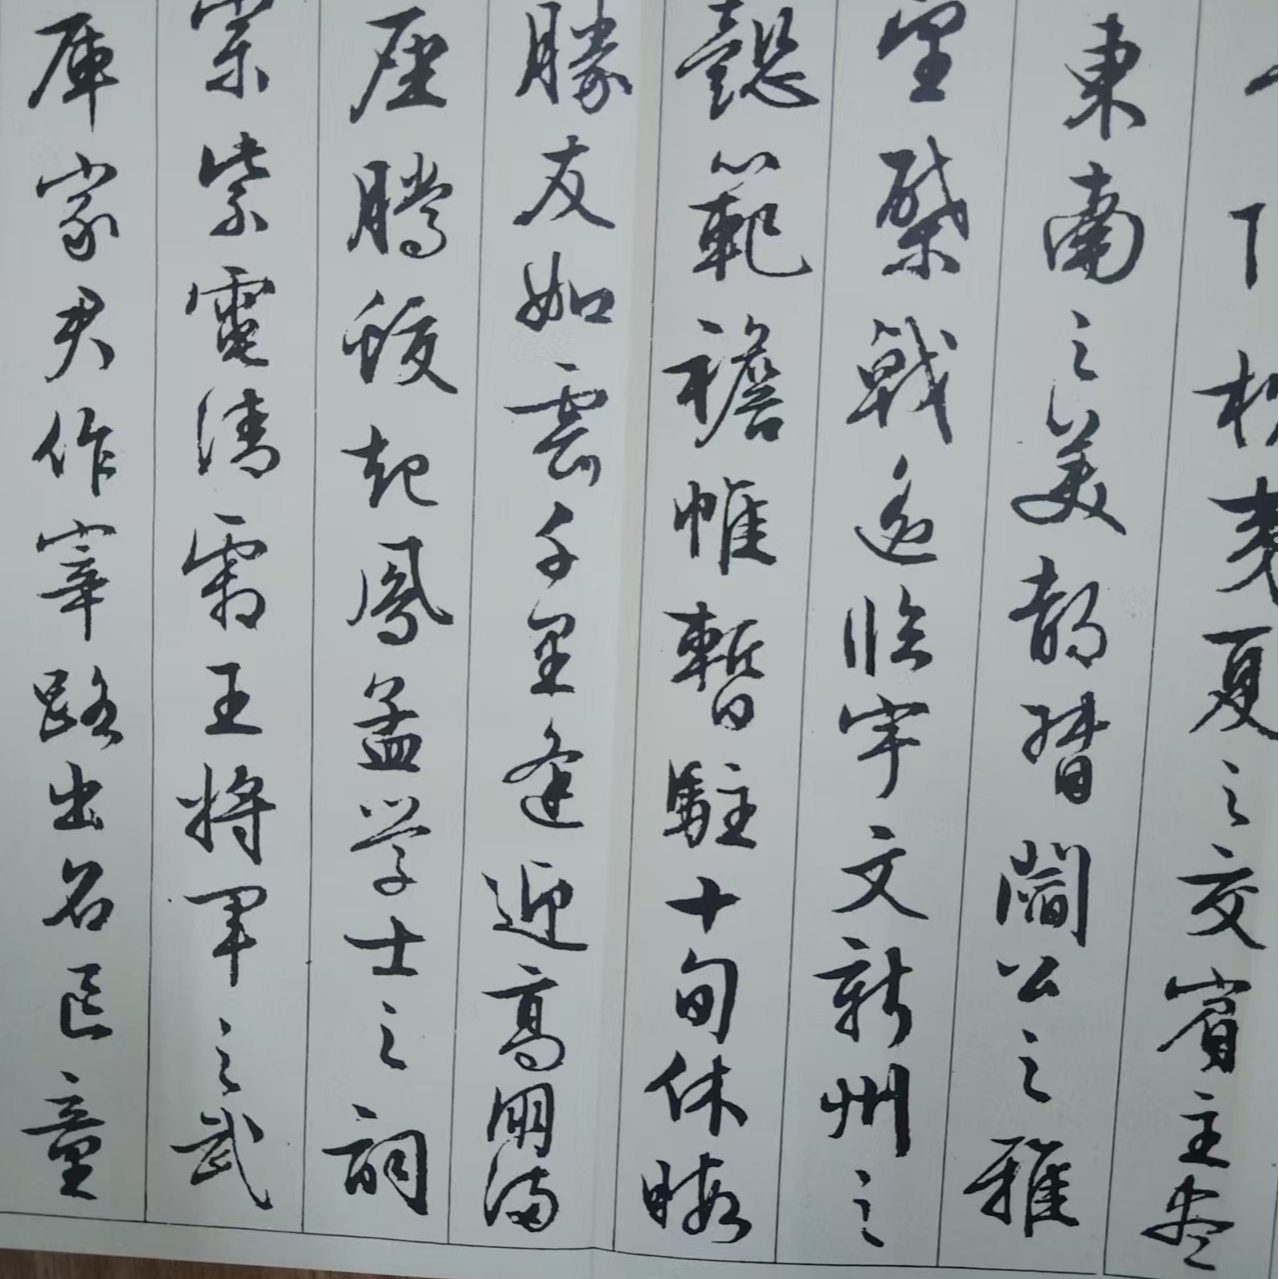 下枕夷夏之交賓主盡
東南之美都督閻公之雅
望棨戟遙臨宇文新州之
懿範襜帷暫駐十旬休暇
勝友如雲千里逢迎高朋滿
座騰蛟起鳳孟學士之詞
宗紫電清霜王將軍之武
庫家君作宰路出名區童